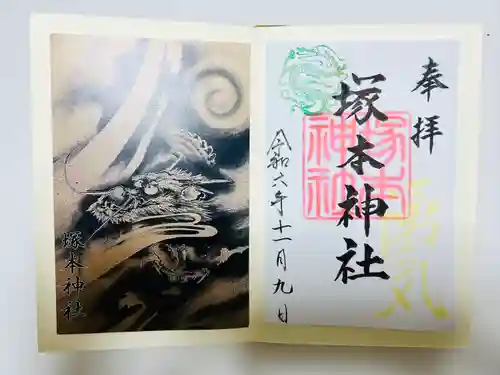 塚本神社
奉拝
塚本神社
塚本
神社
令和六年十一月九日